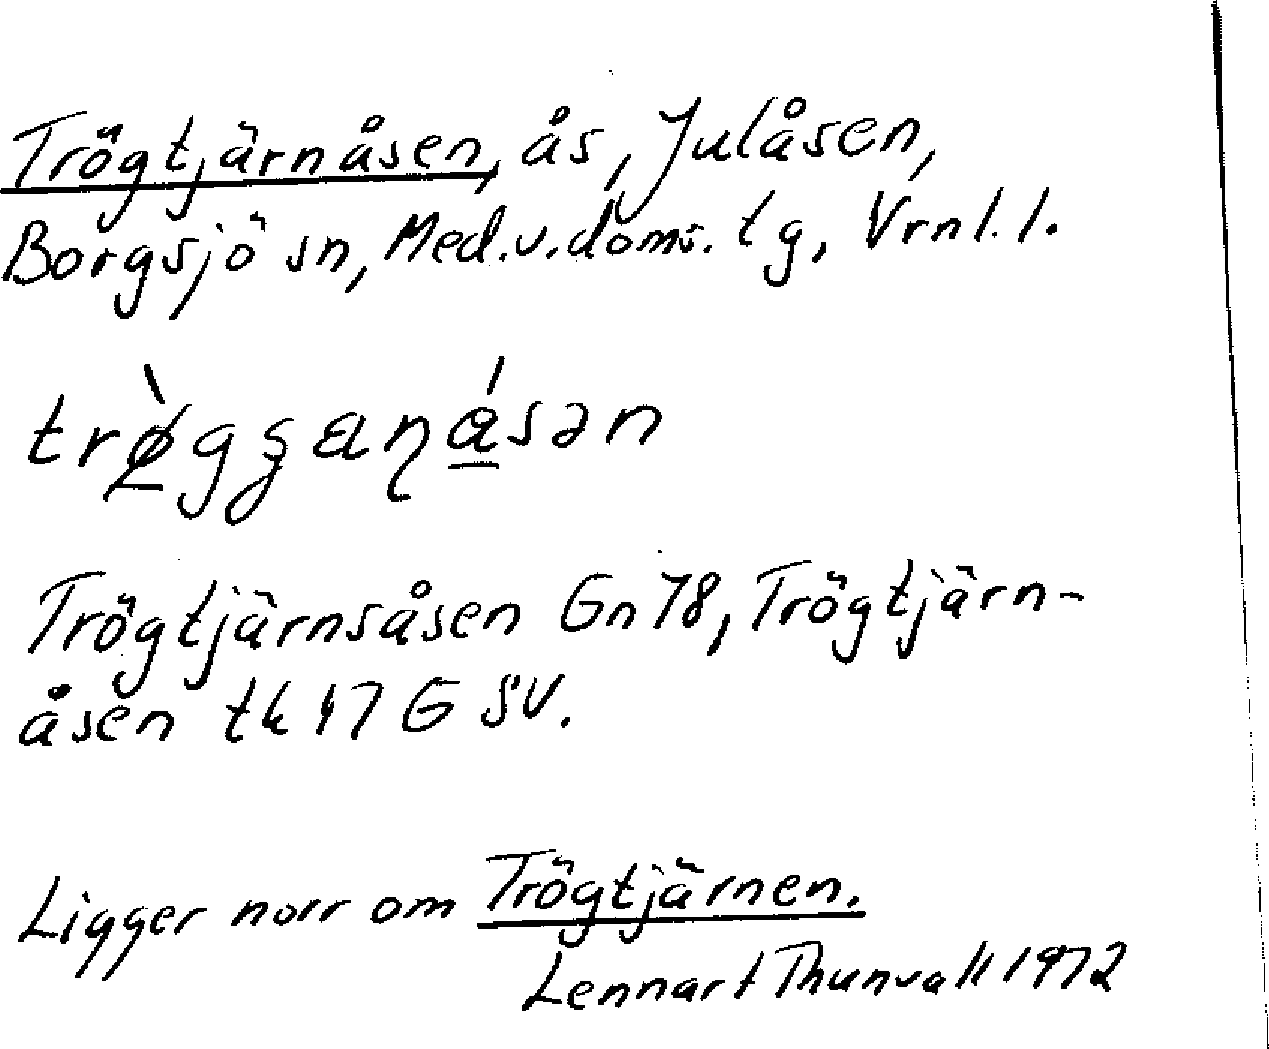 Trögtjärnåsen, ås, Julåsen,
Borgsjö sn, Med.v.doms.tg, Vrnl.l.
trø̱̀gʒaɳá̱sən
Trögtjärnsåsen Gn 78, Trögtjärn-
åsen tk 17 G SV.
Ligger norr om Trögtjärnen.
Lennart Thunvall 1972